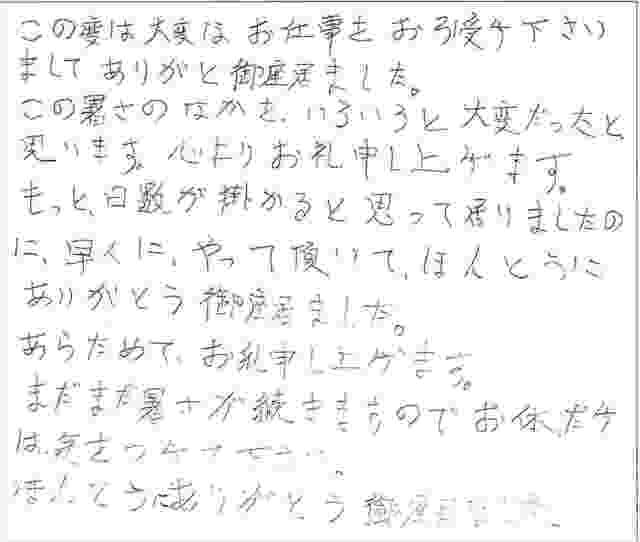 この度は大変な お仕事を お引受ケ下さい
まして ありがと御座居ました。
この暑さの なかを、いろいろと 大変だったと、
思います。心より お礼申し上ゲます。
もっと、日数が掛かると 思って居りましたの
に、早くに、やって 頂いて、ほんとうに
ありがとう 御座居ました。
あらためて、お礼申し上ゲます。
まだまだ暑さが続きますので お体だケ
は、気をつけ
ほんとうにありがとう 御座居ました、